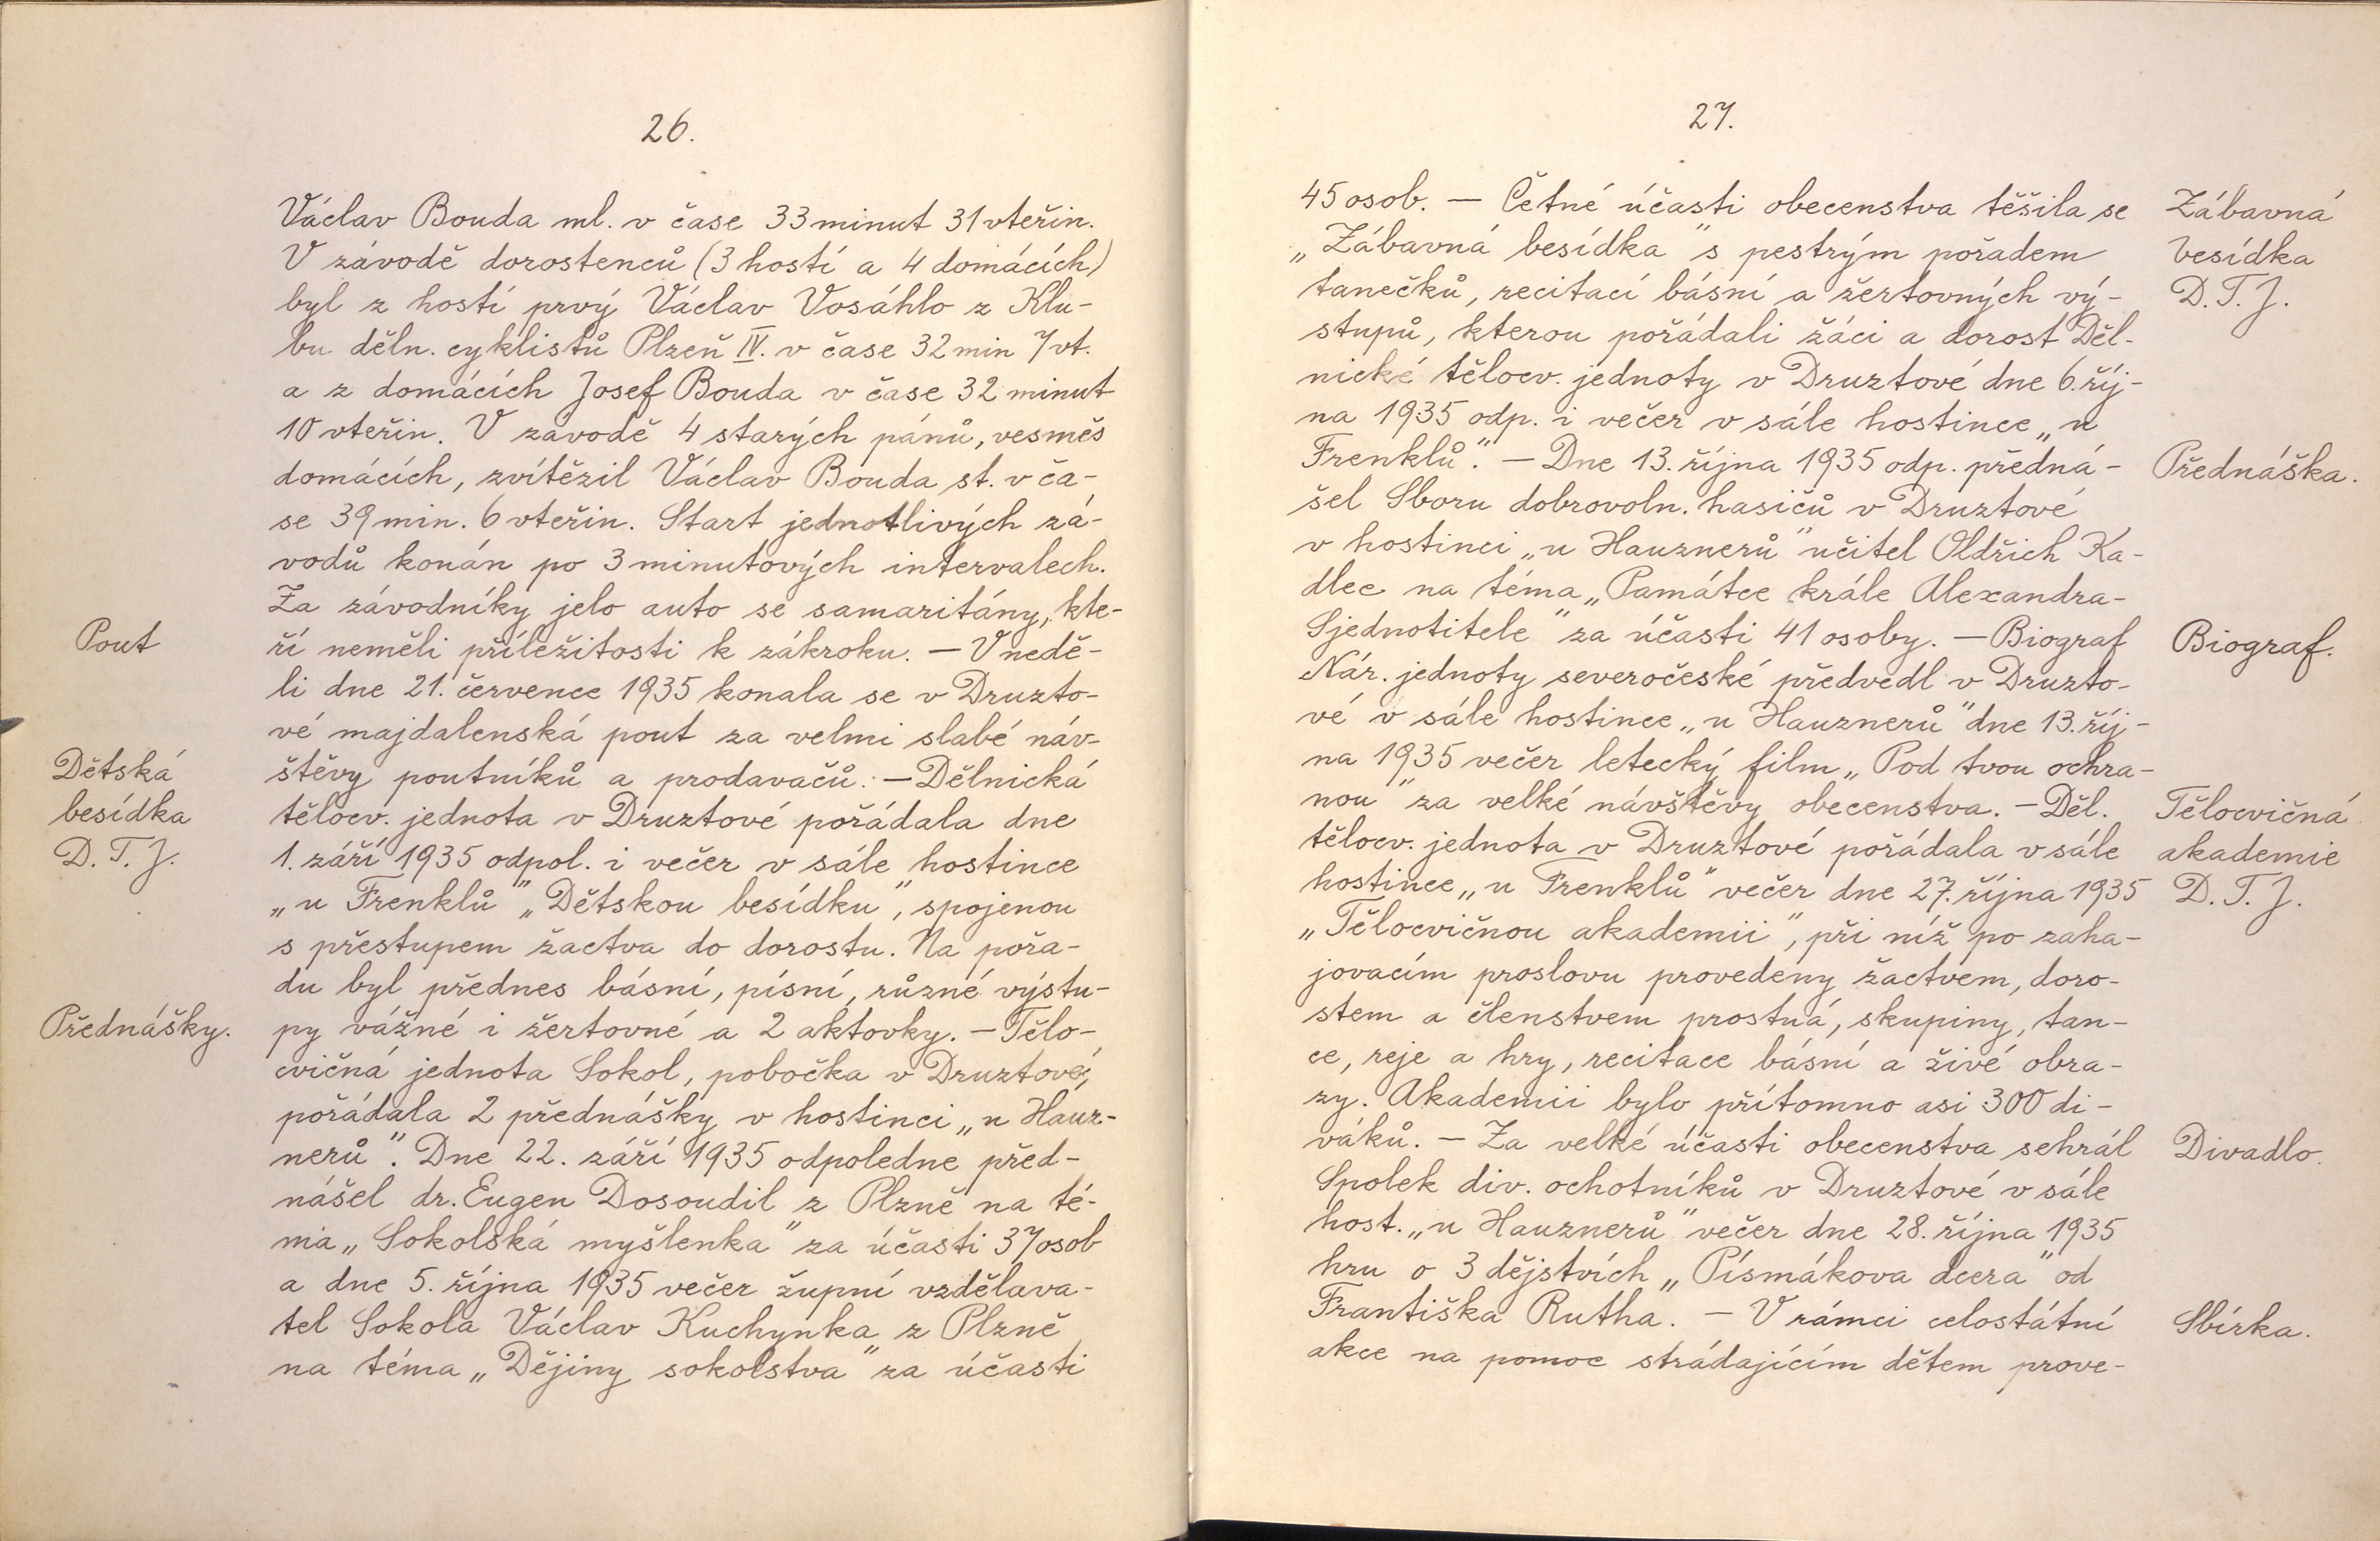 26.
Václav Bouda ml. v čase 33 minut 31 vteřin.
V závodě dorostenců (3 hostí a 4 domácích)
byl z hostí prvý Václav Vosáhlo z Klu-
bu děln. cyklistů Plzeň IV. v čase 32 min 7 vt.
a z domácích Josef Bouda v čase 32 minut
10 vteřin. V závodě 4 starých pánů, vesměs
domácích, zvítězil Václav Bouda st. v ča-
se 39 min. 6 vteřin. Start jednotlivých zá-
vodů konán po 3 minutových intervalech.
Za závodníky jelo auto se samaritány, kte-
Pout
ří neměli příležitosti k zákroku. — V nedě-
li dne 21. července 1935 konala se v Druzto-
vé majdalenská pout za velmi slabé náv-
Dětská
štěvy poutníků a prodavačů. — Dělnická
besídka
tělocv. jednota v Druztové pořádala dne
D. T. J.
1. září 1935 odpol. i večer v sále hostince
„u Frenklů" „Dětskou besídku", spojenou
s přestupem žactva do dorostu. Na pořa-
du byl přednes básní, písní, různé výstu-
Přednášky.
py vážné i žertovné a 2 aktovky. — Tělo-
cvičná jednota Sokol, pobočka v Druztové,
pořádala 2 přednášky v hostinci „u Hauz-
nerů". Dne 22. září 1935 odpoledne před-
nášel dr. Eugen Dosoudil z Plzně na té-
ma „Sokolská myšlenka" za účasti 37 osob
a dne 5. října 1935 večer župní vzdělava-
tel Sokola Václav Kuchynka z Plzně
na téma „Dějiny sokolstva" za účasti
27.
45 osob. — Četné účasti obecenstva těšila se
Zábavná
„Zábavná besídka" s pestrým pořadem
besídka
tanečků, recitací básní a žertovných vý-
D. T. J.
stupů, kterou pořádali žáci a dorost Děl-
nické tělocv. jednoty v Druztové dne 6. říj-
na 1935 odp. i večer v sále hostince „u
Frenklů". — Dne 13. října 1935 odp. předná-
Přednáška.
šel Sboru dobrovoln. hasičů v Druztové
v hostinci „u Hauznerů" učitel Oldřich Ka-
dlec na téma „Památce krále Alexandra-
Sjednotitele" za účasti 41 osoby. — Biograf
Biograf.
Nár. jednoty severočeské předvedl v Druzto-
vé v sále hostince „u Hauznerů" dne 13. říj-
na 1935 večer letecký film „Pod tvou ochra-
nou" za velké návštěvy obecenstva. — Děl.
Tělocvičná
tělocv. jednota v Druztové pořádala v sále
akademie
hostince „u Frenklů" večer dne 27. října 1935
D. T. J.
„Tělocvičnou akademii", při níž po zaha-
jovacím proslovu provedeny žactvem, doro-
stem a členstvem prostná, skupiny, tan-
ce, reje a hry, recitace básní a živé obra-
zy. Akademii bylo přítomno asi 300 di-
váků. — Za velké účasti obecenstva sehrál
Divadlo.
Spolek div. ochotníků v Druztové v sále
host. „u Hauznerů" večer dne 28. října 1935
hru o 3 dějstvích „Písmákova dcera" od
Františka Rutha. — V rámci celostátní
Sbírka.
akce na pomoc strádajícím dětem prove-